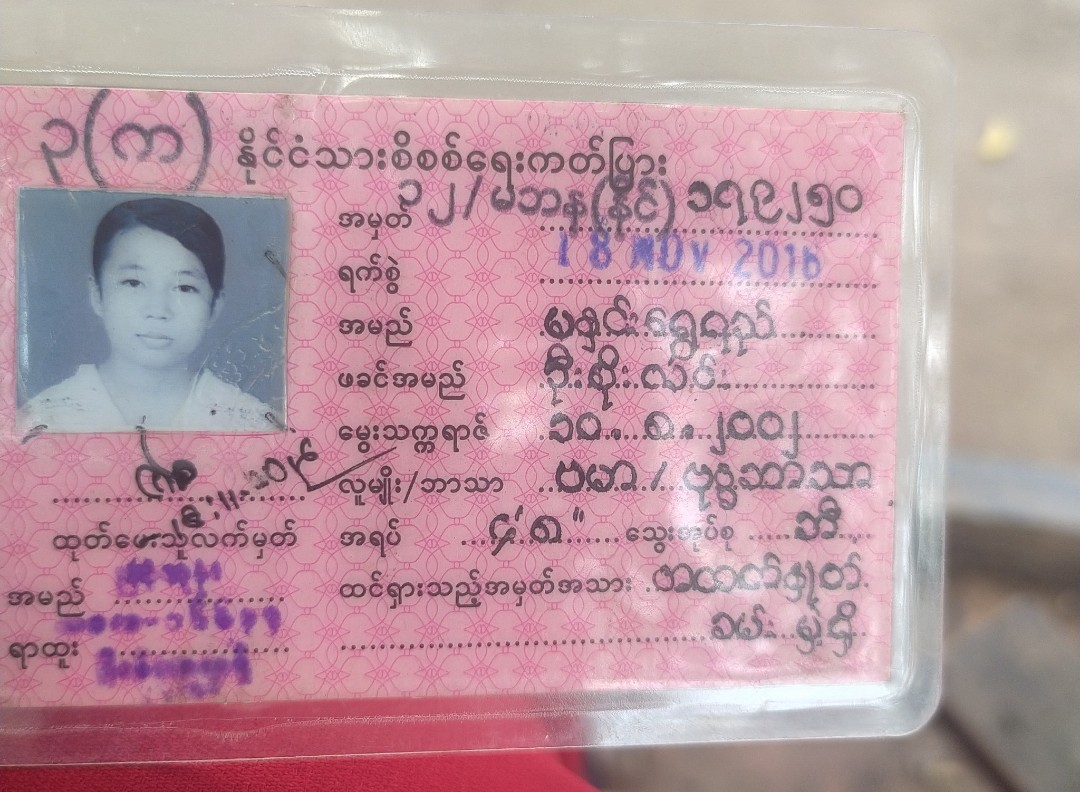 ၃(က) နိုင်ငံသားစိစစ်ရေးကတ်ပြား
အမှတ် ၁၂/မဘန(နိုင်) ၁၇၉၂၅၀
ရက်စွဲ 18 NOV 2016
အမည် မနှင်းရွှေရည်
ဖခင်အမည် ဦးစိုးလင်း
မွေးသက္ကရာဇ် ၁၀.၈.၂၀၀၂
လူမျိုး/ဘာသာ ဗမာ / ဗုဒ္ဓဘာသာ
အရပ် ၄'၈" သွေးအုပ်စု ဘီ
ထင်ရှားသည့်အမှတ်အသား
ထုတ်ပေးသူလက်မှတ်
အမည်
ရာထူး